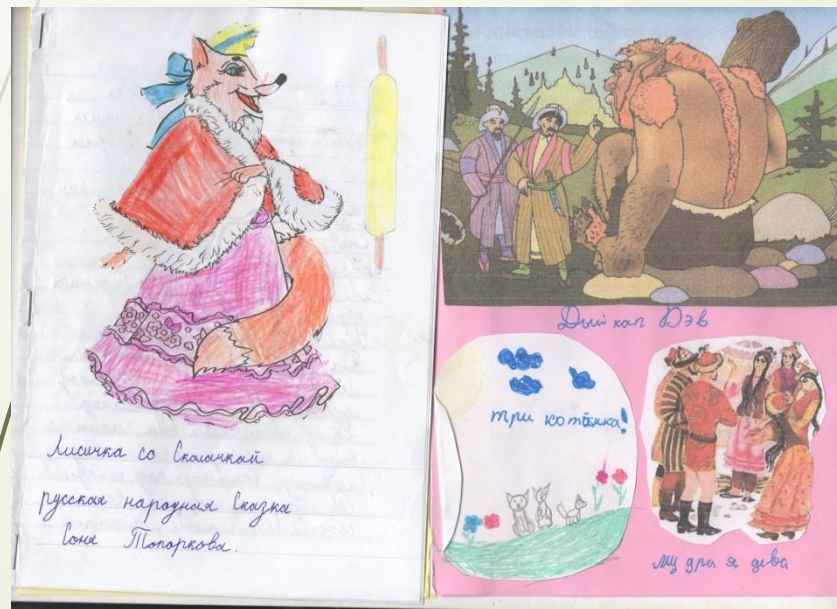 Лисичка со Скалачкай
русская народная Сказка
Соня Топоркова.
Дыйкан Дэв
три котёнка!
му дра я дева